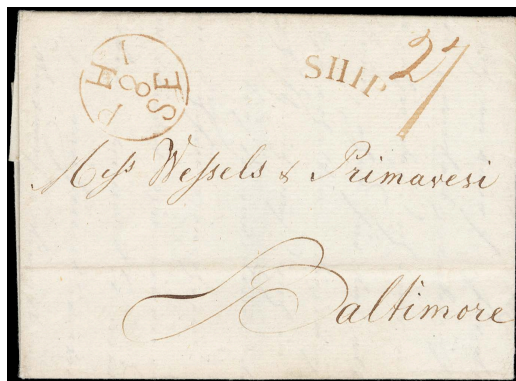 PHI
8
SE
SHIP
27
Mess Wessels & Primavesi
Baltimore